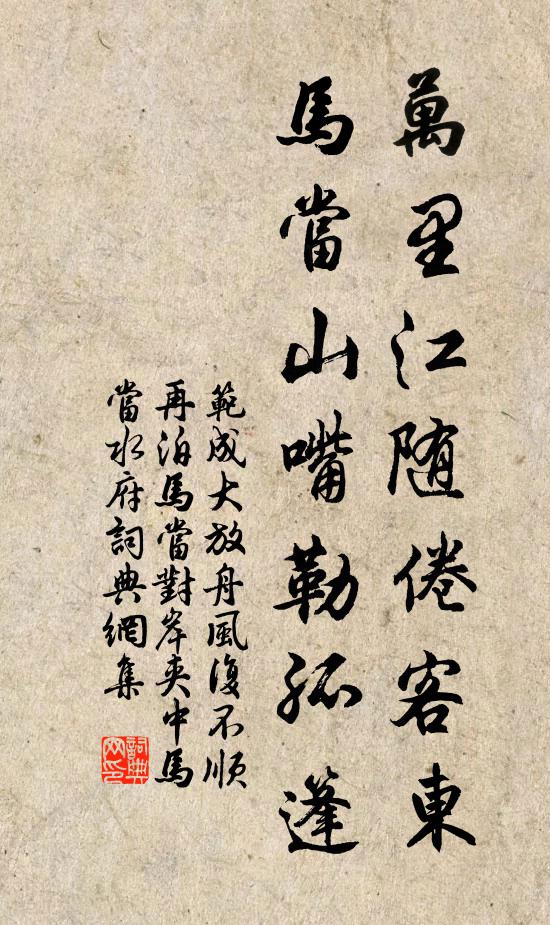 萬里江随倦客東
馬當山嘴勒孤篷
範成大放舟風復不順
再泊馬當對岸夾中馬
當水府詞典網集
詞典網印